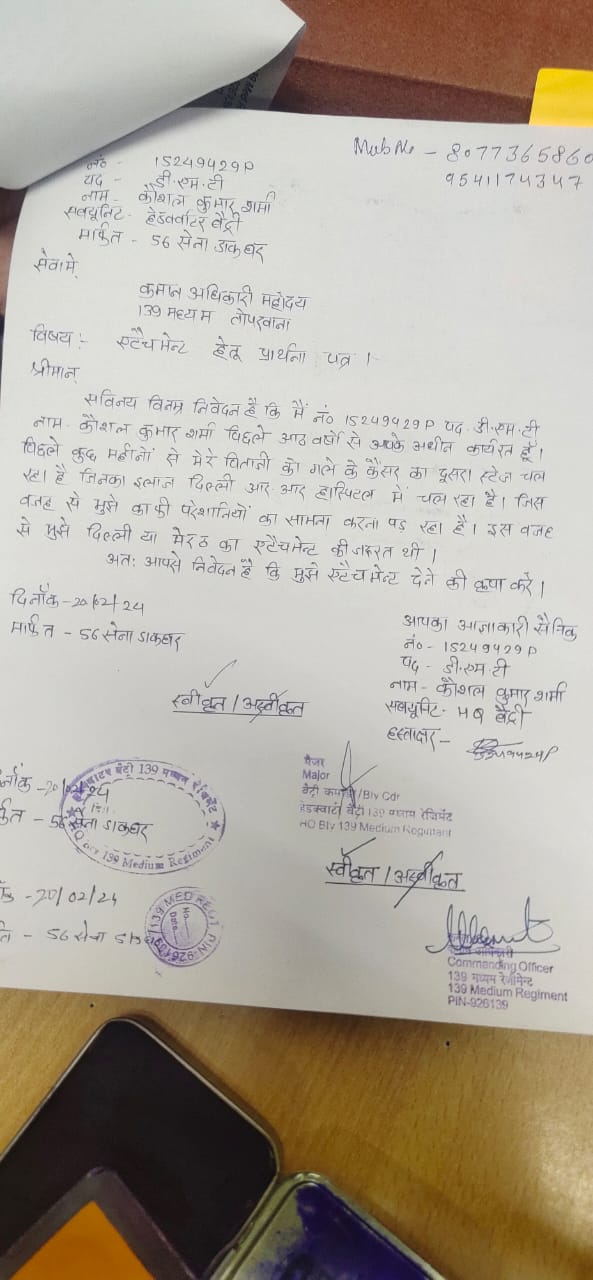 Mob No - 8077365860
9541174347
नं० - 15249429P
पद - डी.एम.टी
नाम - कौशल कुमार शर्मा
सबयूनिट- हेडक्वाटर बैट्री
मार्फत - 56 सेना डाकघर
सेवामे,
कमान अधिकारी महोदय
139 मध्यम तोपखाना
विषय:- स्टैचमेन्ट हेतू प्रार्थना पत्र ।
श्रीमान्,
सविनय विनम्र निवेदन है कि मैं नं० 15249429P पद डी.एम.टी
नाम- कौशल कुमार शर्मा पिछले आठ वर्षो से आपके अधीन कार्यरत हूँ।
पिछले कुछ महीनों से मेरे पिताजी को गले के कैंसर का दूसरा स्टेज चल
रहा है जिनका इलाज दिल्ली आर.आर हास्पिटल में चल रहा है। जिस
वजह से मुझे काफी परेशानियों का सामना करना पड़ रहा है। इस वजह
से मुझे दिल्ली या मेरठ का स्टैचमेन्ट की जरुरत थी।
अत: आपसे निवेदन है कि मुझे स्टैचमेन्ट देने की कृपा करें।
दिनाँक-20/02/24
मार्फत - 56 सेना डाकघर
आपका आज्ञाकारी सैनिक
नं०- 15249429P
पद - डी.एम.टी
नाम- कौशल कुमार शर्मा
सबयूनिट- HQ बैट्री
हस्ताक्षर-
स्वीकृत / अस्वीकृत
मेजर
Major
बैट्री /Btv Cdr
हेडक्वाटर बैट्री 139 मध्यम रेजिमेंट
HQ Btv 139 Medium Regiment
-20/02/24
- 56 सेना डाकघर
139 मध्यम रेजिमेंट
HQ Btv 139 Medium Regiment
स्वीकृत / अस्वीकृत
-20/02/24
- 56 सेना
139 MED REGT
No
Date
PIN-926139
Commanding Officer
139 मध्यम रेजीमेन्ट
139 Medium Regiment
PIN-926139